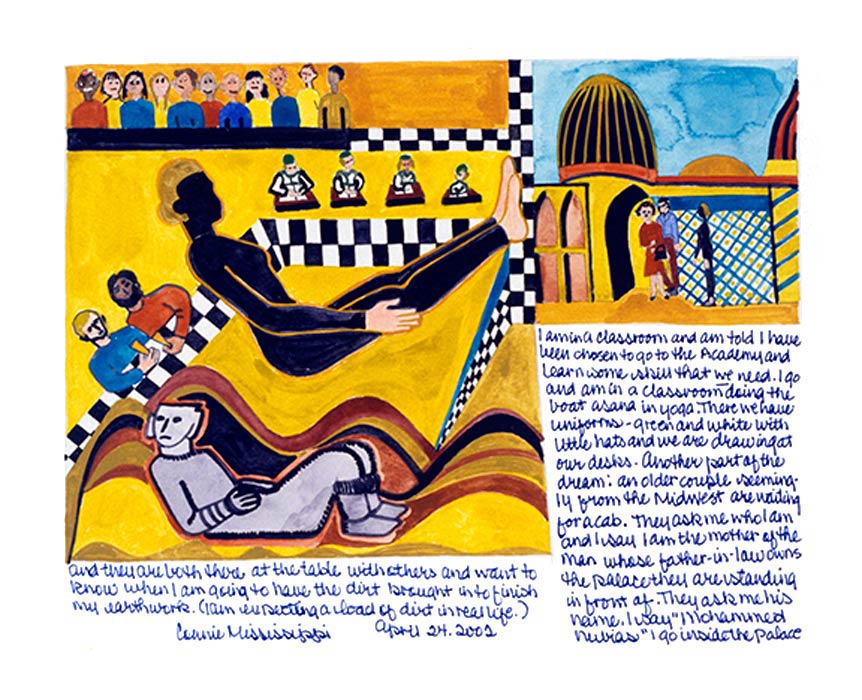 I am in a classroom and am told I have
been chosen to go to the Academy and
learn some skill that we need. I go
and am in a classroom doing the
boat asana in yoga. There we have
uniforms - green and white with
little hats and we are drawing at
our desks. Another part of the
dream: an older couple seeming-
ly from the Midwest are waiting
for a cab. They ask me who I am
and I say I am the mother of the
man whose father-in-law owns
the palace they are standing
in front of. They ask me his
name. I say "Mohammed
Nubias" I go inside the palace
and they are both there at the table with others and want to
know when I am going to have the dirt brought in to finish
my earthwork. (I am expecting a load of dirt in real life.)
Connie Mississippi April 24. 2002